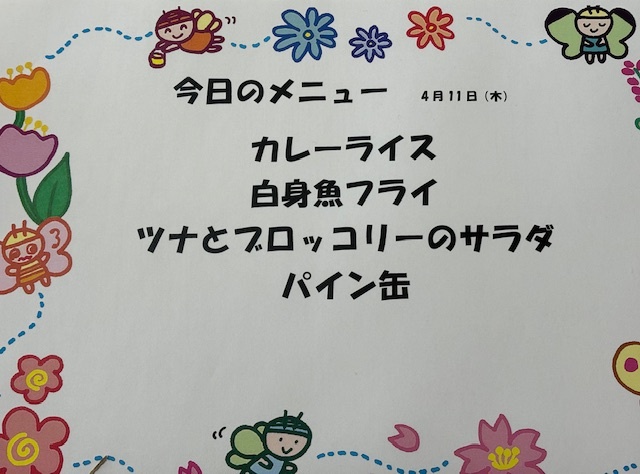 今日のメニュー 4月11日(木)
カレーライス
白身魚フライ
ツナとブロッコリーのサラダ
パイン缶